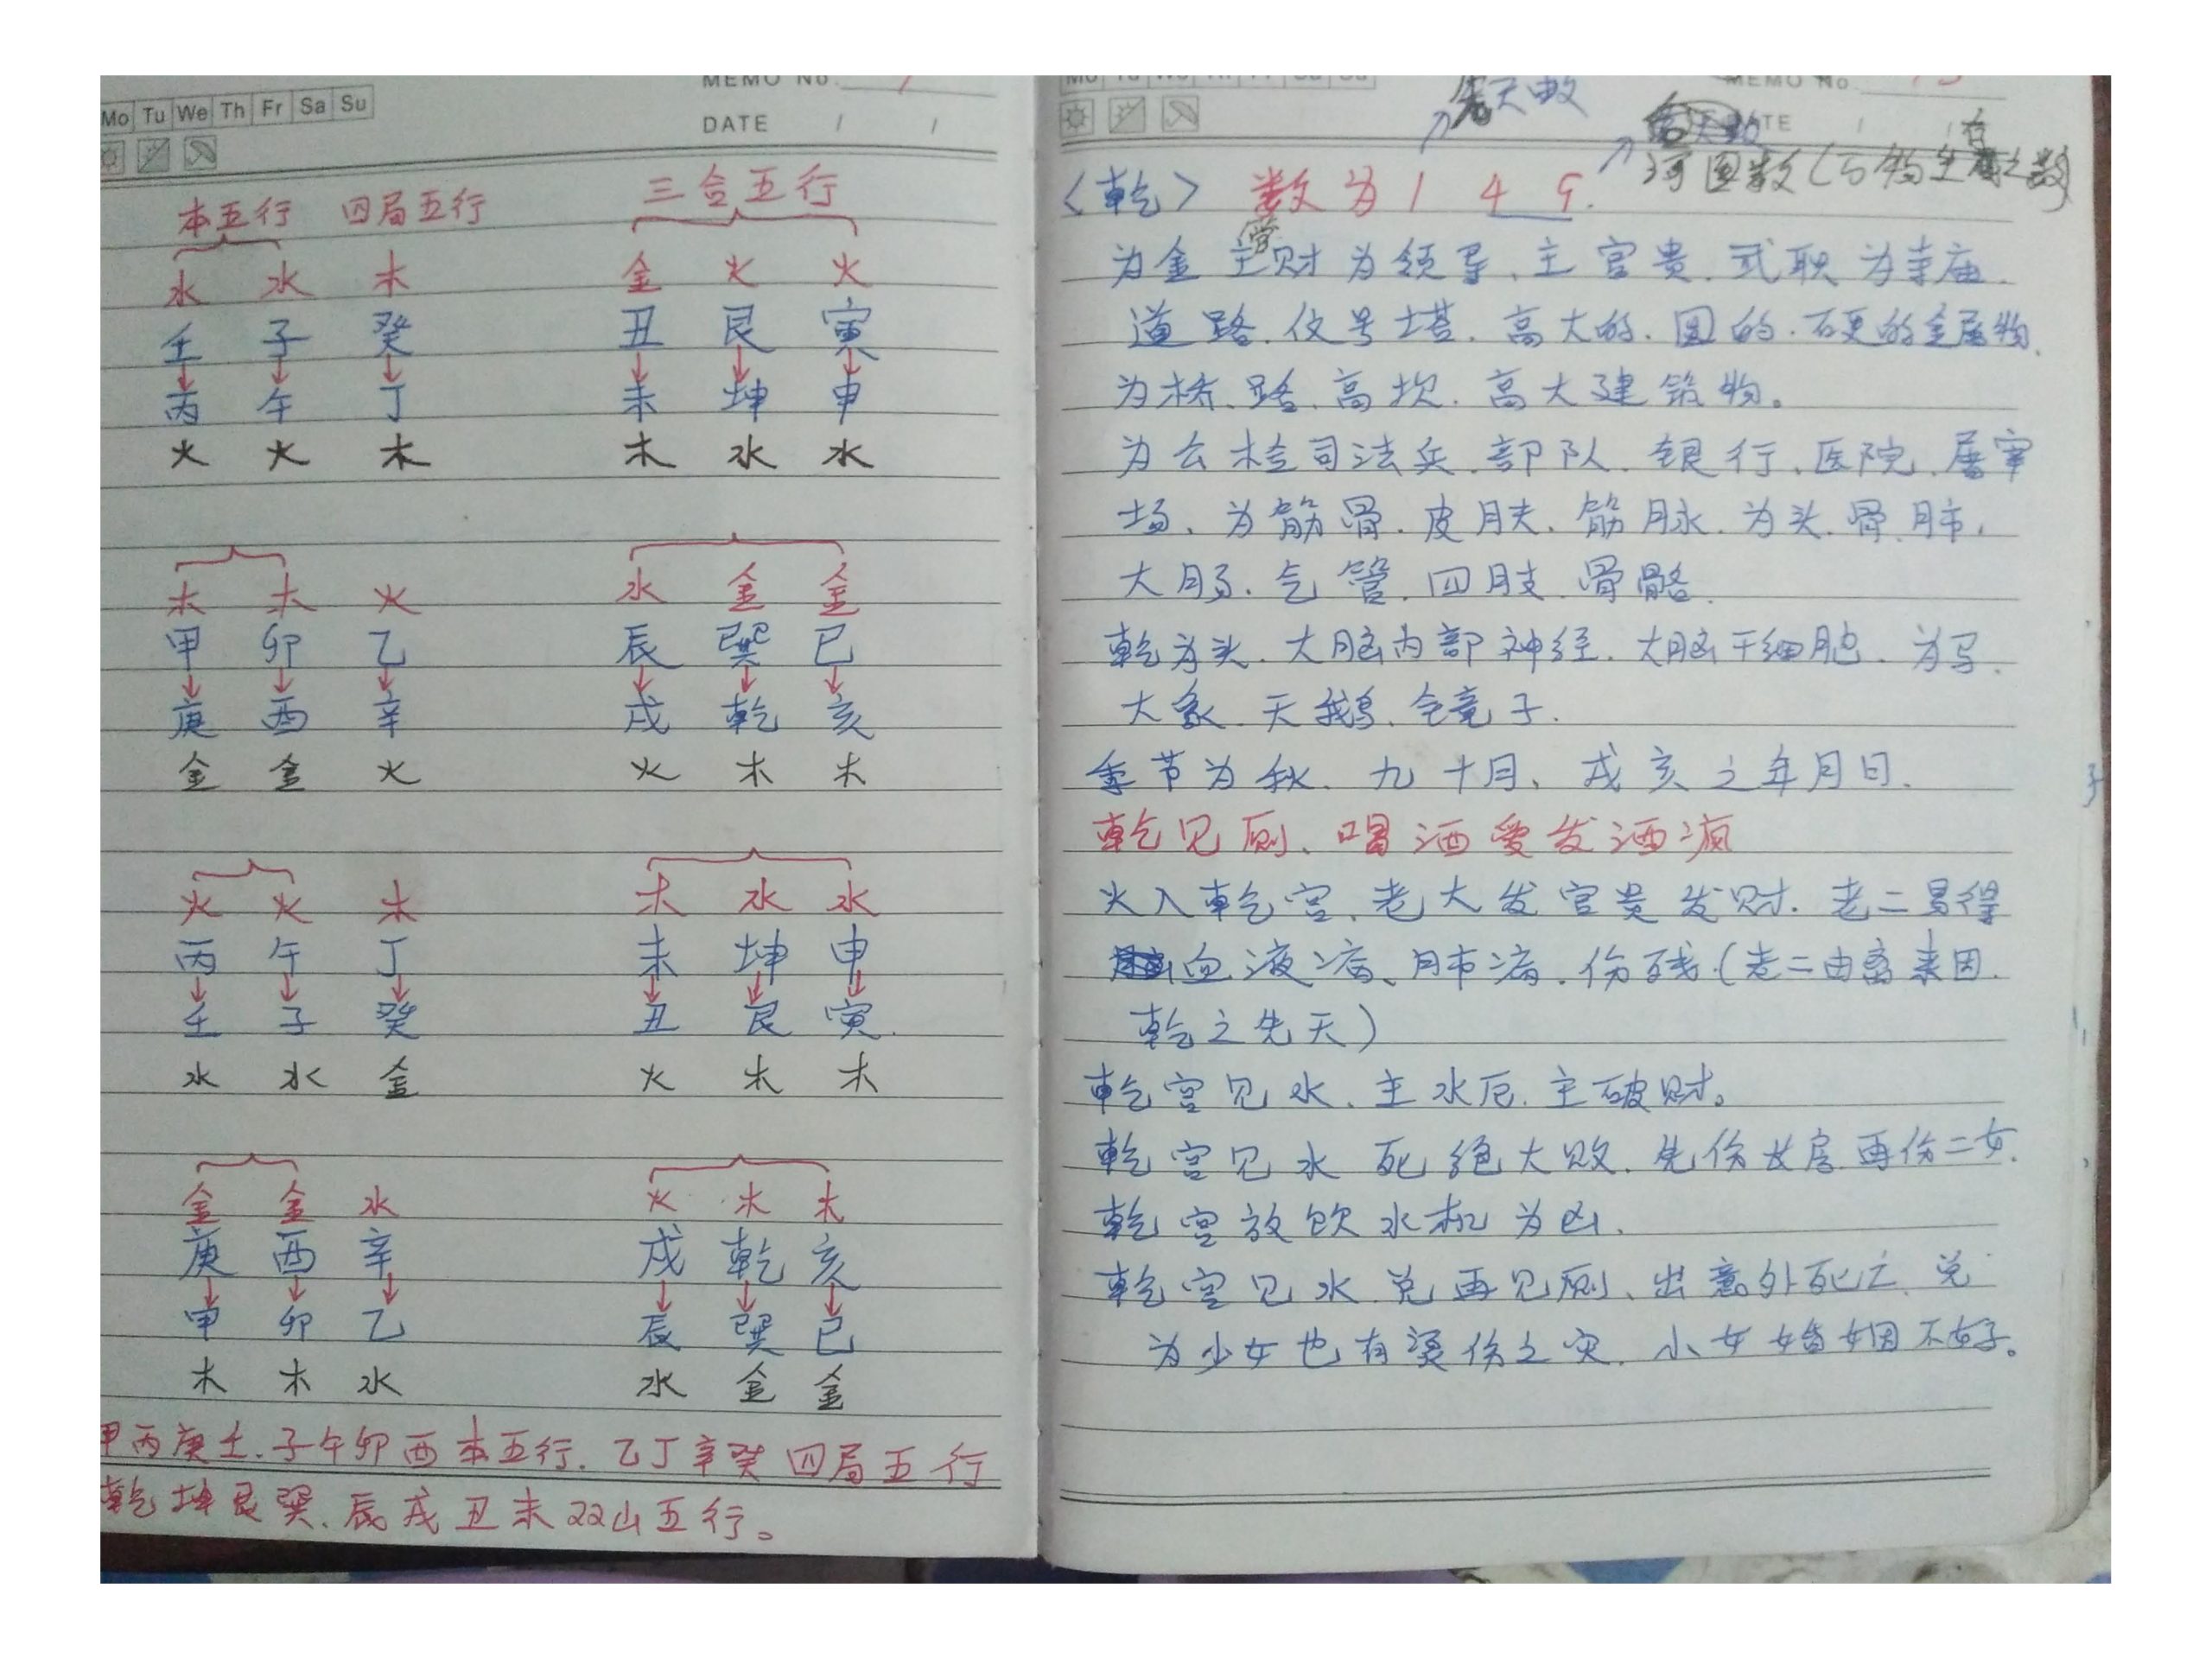 MEMO No.
Mo Tu We Th Fr Sa Su
DATE / /
本五行 四局五行 三合五行
水 水 木 金 火 火
壬 子 癸 丑 艮 寅
丙 午 丁 未 坤 申
火 火 木 木 水 水
木 木 火 水 金 金
甲 卯 乙 辰 巽 巳
庚 酉 辛 戌 乾 亥
金 金 火 火 木 木
火 火 木 木 水 水
丙 午 丁 未 坤 申
壬 子 癸 丑 艮 寅
水 水 金 火 木 木
金 金 水 火 木 木
庚 酉 辛 戌 乾 亥
甲 卯 乙 辰 巽 巳
木 木 水 水 金 金
甲丙庚壬.子午卯酉本五行.乙丁辛癸四局五行
乾坤艮巽.辰戌丑未双山五行。
Mo Tu We Th Fr Sa Su
MEMO No.
先天数
河图数(万物生之数)
<乾> 数为1 4 9.
为金主财为领导、主官贵.武职为寺庙.
道路.信号塔.高大的.圆的.硬的金属物.
为桥、路、高坎.高大建筑物。
为公检司法兵.部队.银行、医院.屠宰
场、为筋骨.皮肤.筋脉.为头.骨.肺.
大肠.气管.四肢.骨骼.
乾为头.大脑内部神经.大脑干细胞.为马.
大象.天鹅.镜子.
季节为秋.九十月、戌亥之年月日.
乾见厕、喝酒爱发酒疯
火入乾宫、老大发官贵发财.老二易得
血液病、肺病.伤残.(老二由离来因.
乾之先天)
乾宫见水、主水厄.主破财。
乾宫见水死绝大败.先伤长房.再伤二女.
乾宫放饮水机为凶.
乾宫见水.兑再见厕、出意外死亡.兑
为少女也有烫伤之灾.小女婚姻不好。